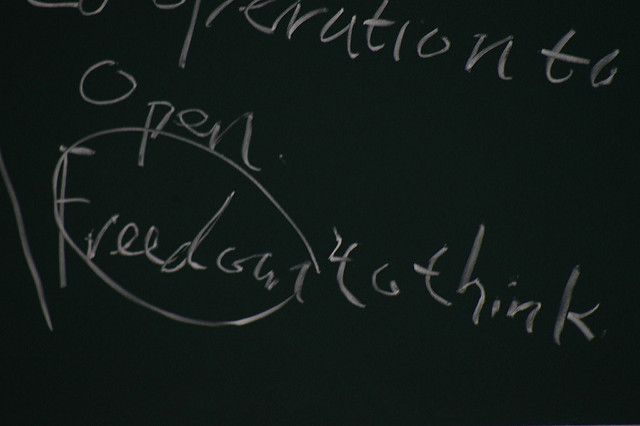 operation to
open.
Freedom to think.